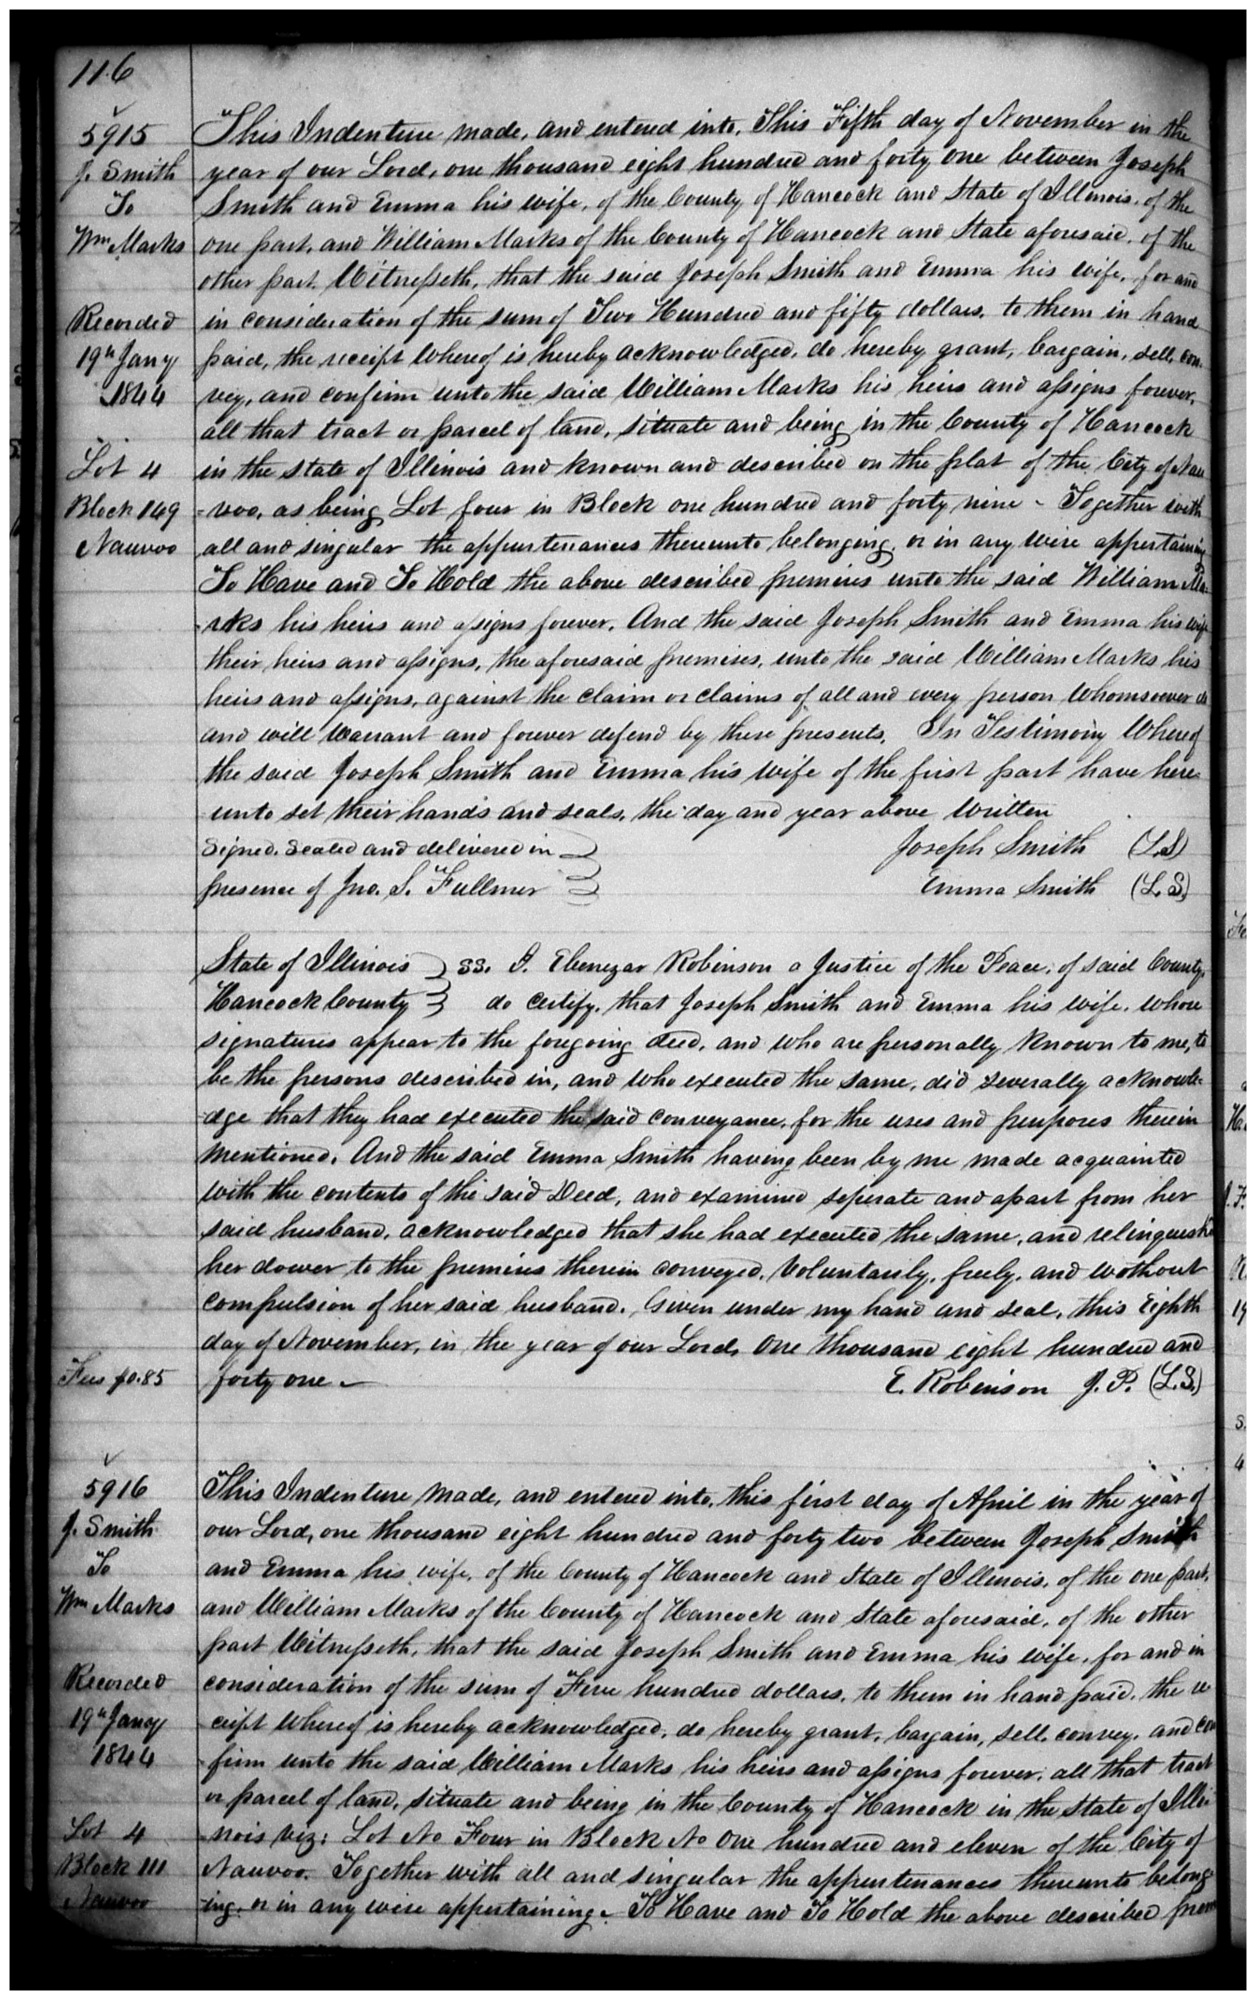 116
5915
J. Smith
To
Wm Marks
Recorded
19th Jany
1844
Lot 4
Block 149
Nauvoo
This Indenture made, and entered into, This Fifth day of November in the
year of our Lord, one thousand eight hundred and forty one between Joseph
Smith and Emma his wife, of the County of Hancock and State of Illinois, of the
one part, and William Marks of the County of Hancock and State aforesaid, of the
other part. Witnesseth, that the said Joseph Smith and Emma his wife, for and
in consideration of the sum of Two Hundred and fifty dollars, to them in hand
paid, the receipt whereof is hereby acknowledged, do hereby grant, bargain, sell, con-
vey, and confirm unto the said William Marks his heirs and assigns forever,
all that tract or parcel of land, situate and being in the County of Hancock
in the state of Illinois and known and described on the plat of the City of Nau
-voo, as being Lot four in Block one hundred and forty nine - Together with
all and singular the appurtenances thereunto belonging, or in any wise appertaining
To Have and To Hold the above described premises unto the said William Ma-
-rks his heirs and assigns forever. And the said Joseph Smith and Emma his wife
their heirs and assigns, the aforesaid premises, unto the said William Marks his
heirs and assigns, against the claim or claims of all and every person whomsoever do
and will warrant and forever defend by these presents. In Testimony Whereof
the said Joseph Smith and Emma his wife of the first part have here-
unto set their hands and seals, the day and year above written
Signed, Sealed and delivered in Joseph Smith (L.S)
presence of Jno. S. Fullmer Emma Smith (L.S.)
State of Illinois ss. I. Ebenezar Robinson a Justice of the Peace, of said County,
Hancock County do certify, that Joseph Smith and Emma his wife, whose
signatures appear to the foregoing deed, and who are personally known to me, to
be the persons described in, and who executed the same, did severally acknowle-
dge that they had executed the said conveyance, for the uses and purposes therein
mentioned. And the said Emma Smith having been by me made acquainted
with the contents of the said Deed, and examined seperate and apart from her
said husband, acknowledged that she had executed the same, and relinquished
her dower to the premises therein conveyed, Voluntarily, freely, and without
compulsion of her said husband. Given under my hand and seal, this Eighth
day of November, in the year of our Lord, One thousand eight hundred and
Fees $0.85 forty one - E. Robinson J. P. (L.S.)
5916
J. Smith
To
Wm Marks
Recorded
19th Jany
1844
Lot 4
Block 111
Nauvoo
This Indenture made, and entered into, this first day of April in the year of
our Lord, one thousand eight hundred and forty two between Joseph Smith
and Emma his wife, of the County of Hancock and State of Illinois, of the one part,
and William Marks of the County of Hancock and State aforesaid, of the other
part Witnesseth, that the said Joseph Smith and Emma his wife, for and in
consideration of the sum of Five hundred dollars, to them in hand paid, the re
ceipt whereof is hereby acknowledged, do hereby grant, bargain, sell, convey, and con
-firm unto the said William Marks his heirs and assigns forever, all that tract
or parcel of land, situate and being in the County of Hancock in the State of Illi-
nois viz: Lot No Four in Block No One hundred and eleven of the City of
Nauvoo. Together with all and singular the appurtenances thereunto belong-
-ing, or in any wise appertaining. To Have and To Hold the above described prem